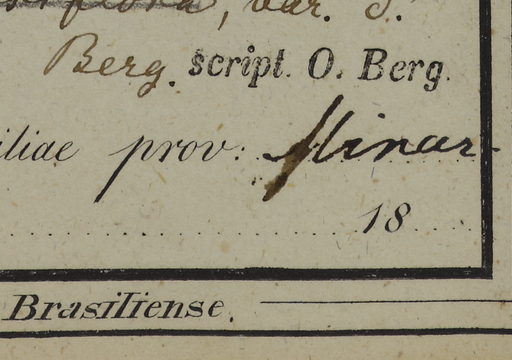 var. δ.
Berg. script. O. Berg.
prov: Minar
18
Brasiliense.